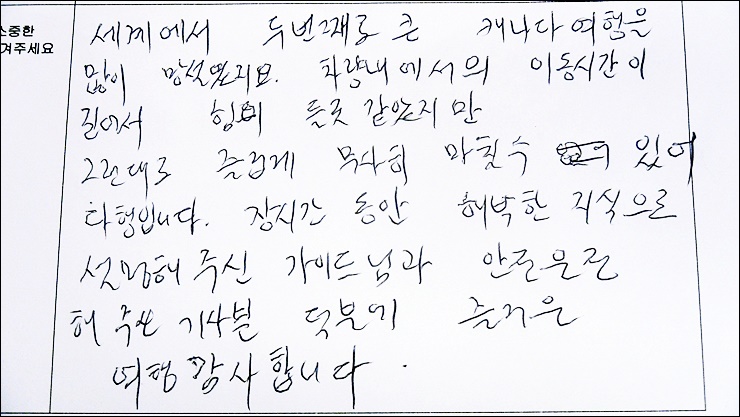 소중한
겨주세요
세계에서 두번째로 큰 캐나다여행을
많이 망설였지요. 차량내에서의 이동시간이
길어서 힘이 들것 같았지만
그런대로 즐겁게 무사히 마칠수 있어
다행입니다. 장시간 동안 해박한 지식으로
설명해 주신 가이드님과 안전운전
해 주신 기사분 덕분에 즐거운
여행 감사합니다.